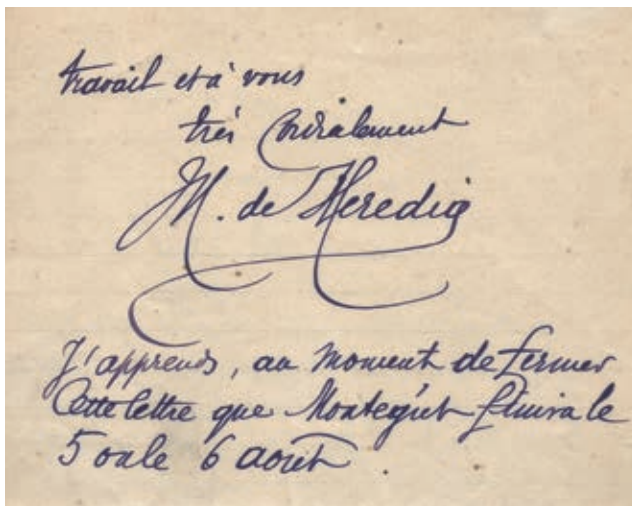 travail et à vous
très Cordialement
M. de Heredia
J'apprends, au moment de fermer
Cette lettre que Montégut finira le
5 ou le 6 août.